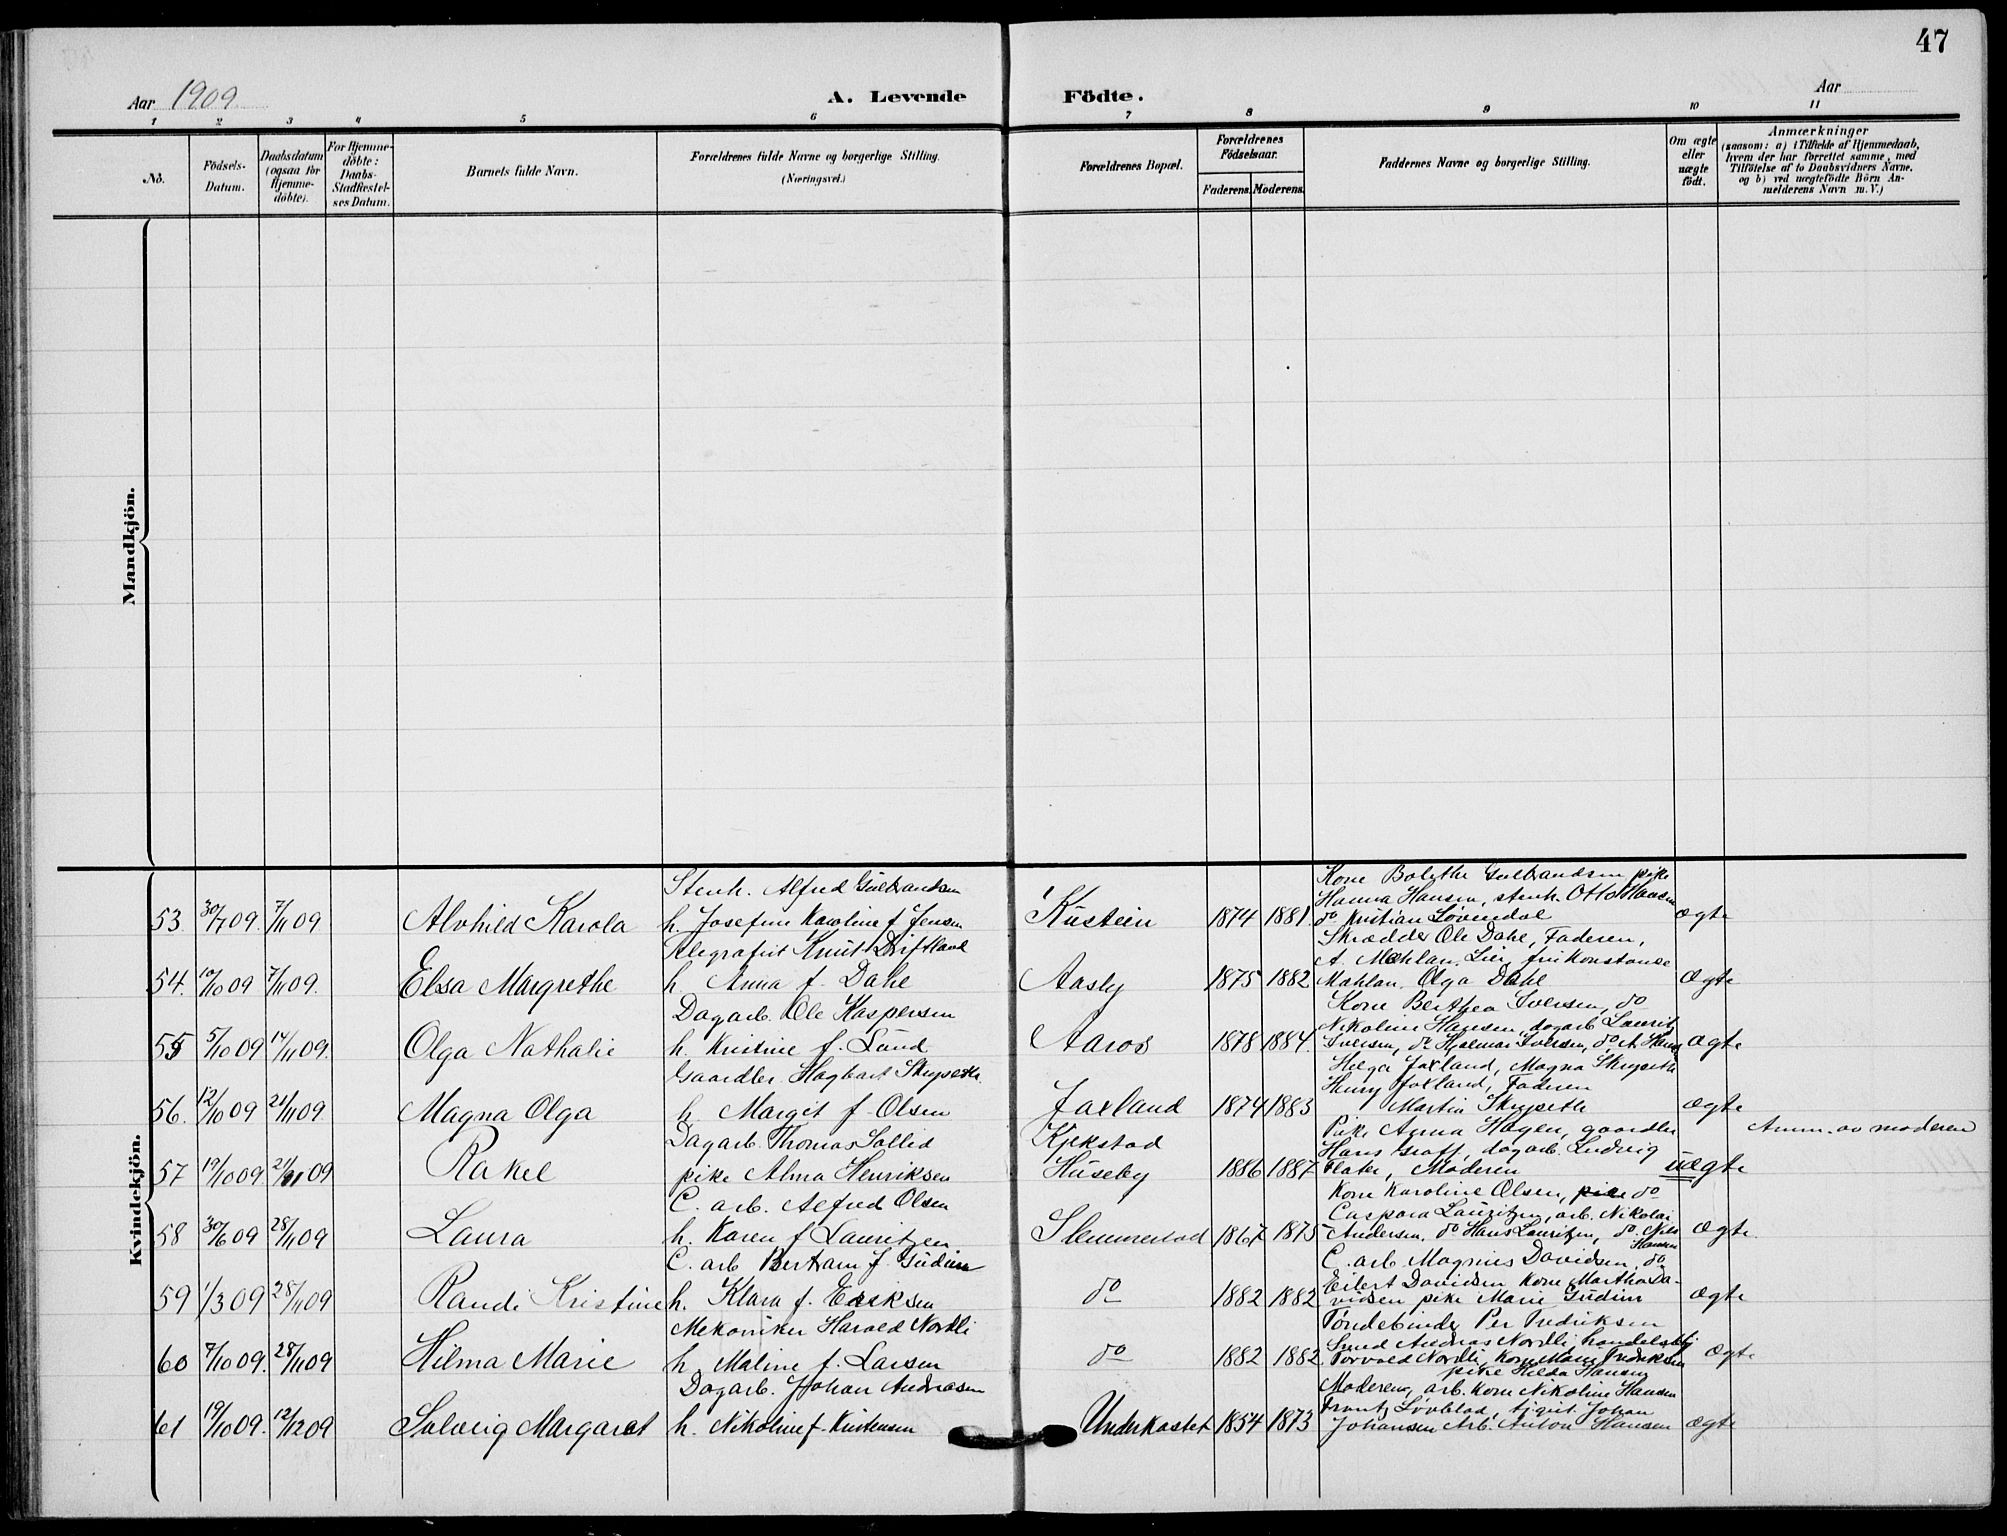 47
Aar 1909
A. Levende Födte.
Aar
1 2 3 4 5 6 7 8 9 10 11
No.
Födsels-Datum.
Daabsdatum (ogsaa for Hjemme-döbte).
For Hjemme-döbte: Daabs-Stadfæstel-ses Datum.
Barnets fulde Navn.
Forældrenes fulde Navne og borgerlige Stilling. (Næringsvei.)
Forældrenes Bopæl.
Forældrenes Födselsaar.
Faderens. Moderens.
Faddernes Navne og borgerlige Stilling.
Om ægte eller uægte födt.
Anmærkninger (saasom: a) i Tilfælde af Hjemmedaab, hvem der har forrettet samme, med Tilföielse af to Daabsvidners Navne, og b) ved uægtefödte Börn An-melderens Navn m. V.)
Mandkjön.
Kvindekjön.
Kone Bolethe Gulbrandsen pike
Stenh. Alfred Gulbrandsen
Hanna Hansen, stenh. Otto Hansen
53. 30/7 09. 7/11 09 Alvhild Karola h. Josefine Karoline f. Jensen 1874 1881 do Kristian Lövendal ægte
Telegrafist Knut Driftland
Skrædder Ole Dahl, Faderen,
54. 10/10 09 7/11 09. Elsa Margrethe h. Anna f. Dahl Aasly 1875 1882 Mæhlan. Olga Dahl ægte
Dagarb. Ole Kaspersen
Kone Berthea Iversen, do
Nikoline Hansen, dagarb Lauritz
55 5/10 09 14/11 09. Olga Nathalie h. Kristine f. Lund Aaros 1878 1884. Iversen, do Hjalmar Iversen, do A. Hans ægte
Gaardbr. Hagbart Skrypeth.
Helga Jaxland, Magna Skrypeth
Henry Jaxland, Faderen
56. 12/10 09 21/11 09 Magna Olga h. Margit f. Olsen Jaxland 1874 1883 Martin Skrypeth ægte
Dagarb. Thomas Sollid Kjekstad Pike Anna Hagen, gaardbr Anm. av moderen
Hans Graff, dagarb. Ludvig
57 19/10 09 21/11 09 Rakel pike Alma Henriksen Huseby 1886 1887 Flater, Moderen uægte
C. arb. Alfred Olsen
Kone Karoline Olsen, pike do
Caspara Lauritzen, arb. Nikolai
58 30/6 09 28/11 09 Laura h. Karen f. Lauritzen Slemmestad 1867 1875 Andersen, do Hans Lauritzen, do Nils Hansen ægte.
C. arb Bertram f. Gudim
C. arb Magnus Davidsen, do
59 1/3 09 28/11 09 Randi Kristine h. Klara f. Eriksen do 1882 1882 Eilert Davidsen Kone Martha Da-
vidsen pike Marie Gudim ægte
Mekaniker Harald Nordli
Töndebinder Per Fredriksen
60 7/10 09. 28/11 09 Hilma Marie h. Maline f. Larsen do 1882 1882 Torvald Nordli, Kone Marie Fredriksen ægte
pike Hilda Hansen
Dagarb. Johan Andreasen
Moderen, arb. Kone Nikoline Hansen
61 19/10 09. 12/12 09 Solveig Margaret h. Nikoline f. Kristensen Underkastet 1854 1873 Johansen Arb. Anton Hansen ægte